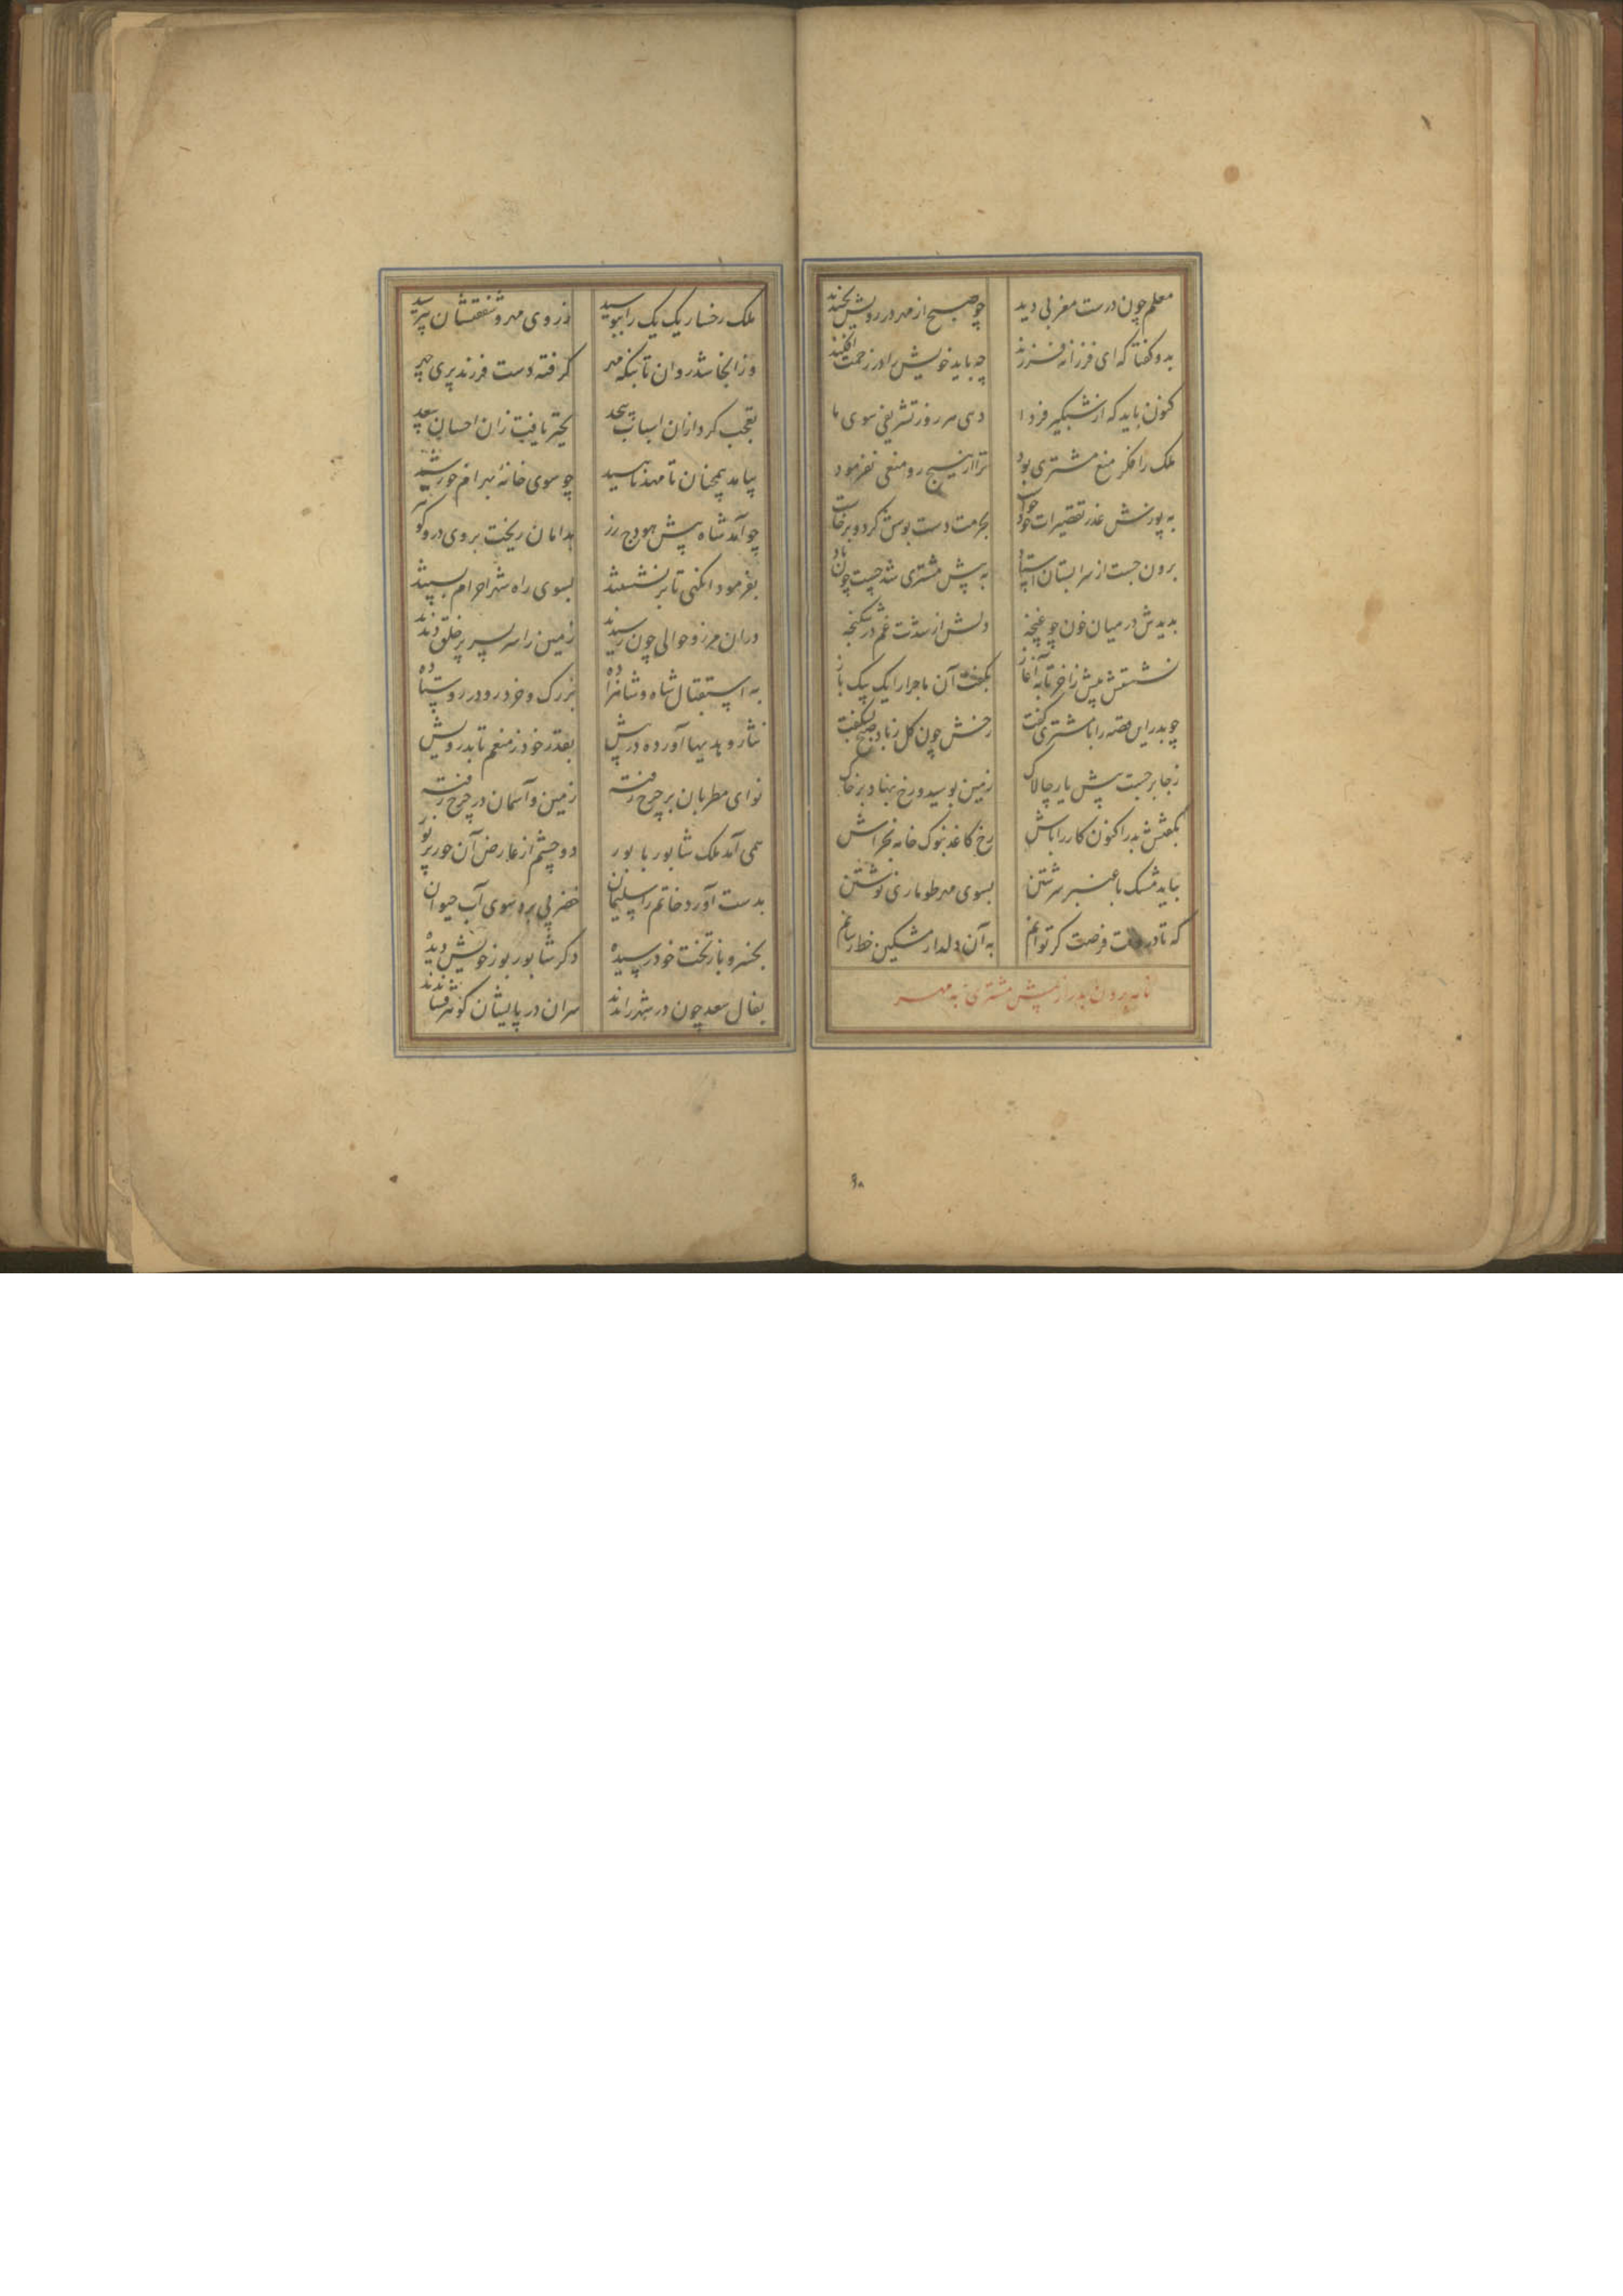 معلم چون درست مغربی دید چو صبح از مهر در رویش بخندید
بدو گفتا که ای فرزانه فرزند چه باید خویش را در زحمت افکند
کنون باید که از شبگیر فردا دهی هر روز تشریفی سوی ما
ملک را فکر منع مشتری بود ترا از هیچ رو منعی نفرمود
به پوزش عذر تقصیرات خود خواست بحرمت دست بوسش کرد و برخاست
برون جست از سرابستان استاد به پیش مشتری شد چست چون باد
بدیدش در میان خون چو غنچه دلش از شدت غم در شکنجه
نشستش پیش زاخر تا به آغاز بگفت آن ماجرا را یک بیک باز
چو بدر این قصه را با مشتری گفت رخش چون گل ز باد صبح بشکفت
زجا برجست پیش یار چالاک زمین بوسید و رخ بنهاد بر خاک
بگفتش بدر اکنون کار را باش رخ کاغذ بنوک خامه بخراش
بباید مشک با عنبر سرشتن بسوی مهر طوماری نوشتن
که تا در وقت فرصت گر توانم به آن دلدار مشکین خط رسانم
نامه بردن بدر از پیش مشتری به مهر
۹۸
ملک رخسار یک یک را ببوسید ز روی مهر و شفقتشان بپرسید
وز انجا شد روان تا بنگه مهر گرفته دست فرزند پری چهر
تعجب کرد ازان اسباب بیحد تحیر یافت زان احسان بیعد
بیامد همچنان تا مهد ناهید چو سوی خانه بهرام خورشید
چو آمد شاه پیش هودج زر بدامان ریخت بروی در و گوهر
بفرمود انگهی تا برنشستند بسوی راه شهر احرام بستند
دران مرز و حوالی چون رسیدند زمین را سر بسر پر خلق دیدند
به استقبال شاه و شاهزاده بزرگ و خرد رو در رو ستاده
نثار و هدیها آورده در پیش بقدر خود ز منعم تا بدرویش
نوای مطربان بر چرخ رفته زمین و آسمان در چرخ رفته
همی آمد ملک شاپور با پور دو چشم از عارض آن حور پر نور
بدست آورد خاتم را سلیمان خضر پی برد سوی آب حیوان
بخسرو باز تخت خود رسیده دگر شاپور پور خویش دیده
بفال سعد چون در شهر راندند سران در پایشان گوهر فشاندند